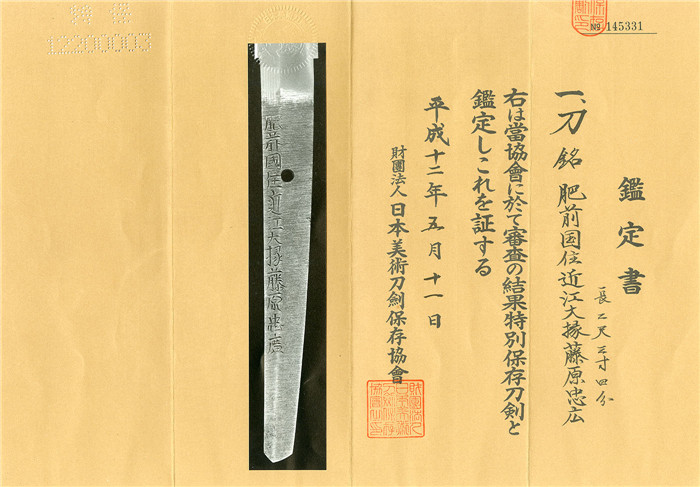 № 145331
鑑定書
一、刀 銘 肥前国住近江大掾藤原忠広
長二尺三寸四分
右は當協會に於て審査の結果特別保存刀剣と
鑑定しこれを証する
平成十二年五月十一日
財團法人 日本美術刀剣保存協會
肥前國住近江大掾藤原忠廣
12200003